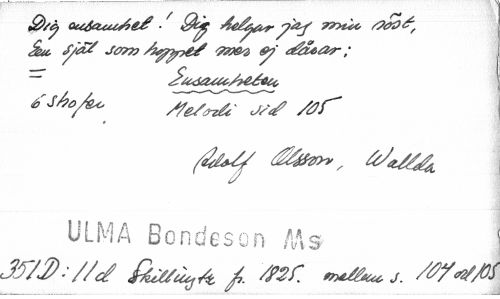 Dig ensamhet! Dig helgar jag min röst,
Een själ som hoppet mer ej dårar;
=
Ensamheten
6 strofer
Melodi sid 105
Adolf Olsson, Wallda
ULMA Bondeson Ms
351D:11d Skillingtr fr. 1825. mellan s. 104 och 105